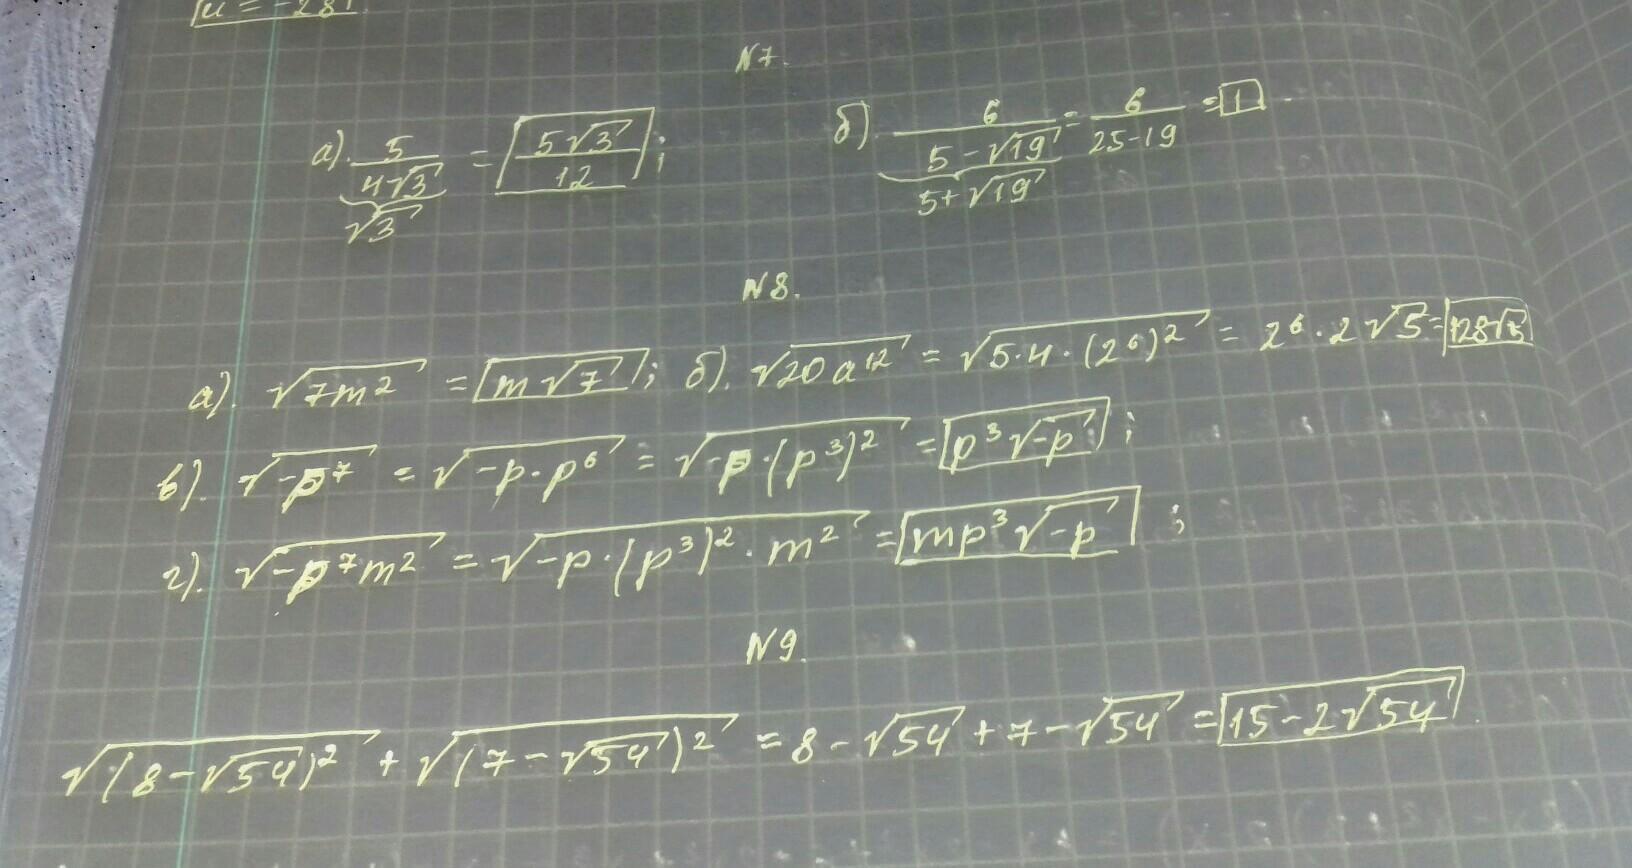 u = -28
N7.
а). 5/(4√3) √3 = 5√3/12 ; б) 6/(5-√19) 5+√19 = 6/(25-19) = 1.
N8.
а). √(7m²) = m√7 ; б). √(20a¹²) = √(5·4·(2⁶)²) = 2⁶·2√5 = 128√5
в). √(-p⁷) = √(-p·p⁶) = √(-p·(p³)²) = p³√(-p) ;
г). √(-p⁷m²) = √(-p·(p³)²·m²) = mp³√(-p) ;
N9.
√((8-√54)²) + √((7-√54)²) = 8-√54+7-√54 = 15-2√54